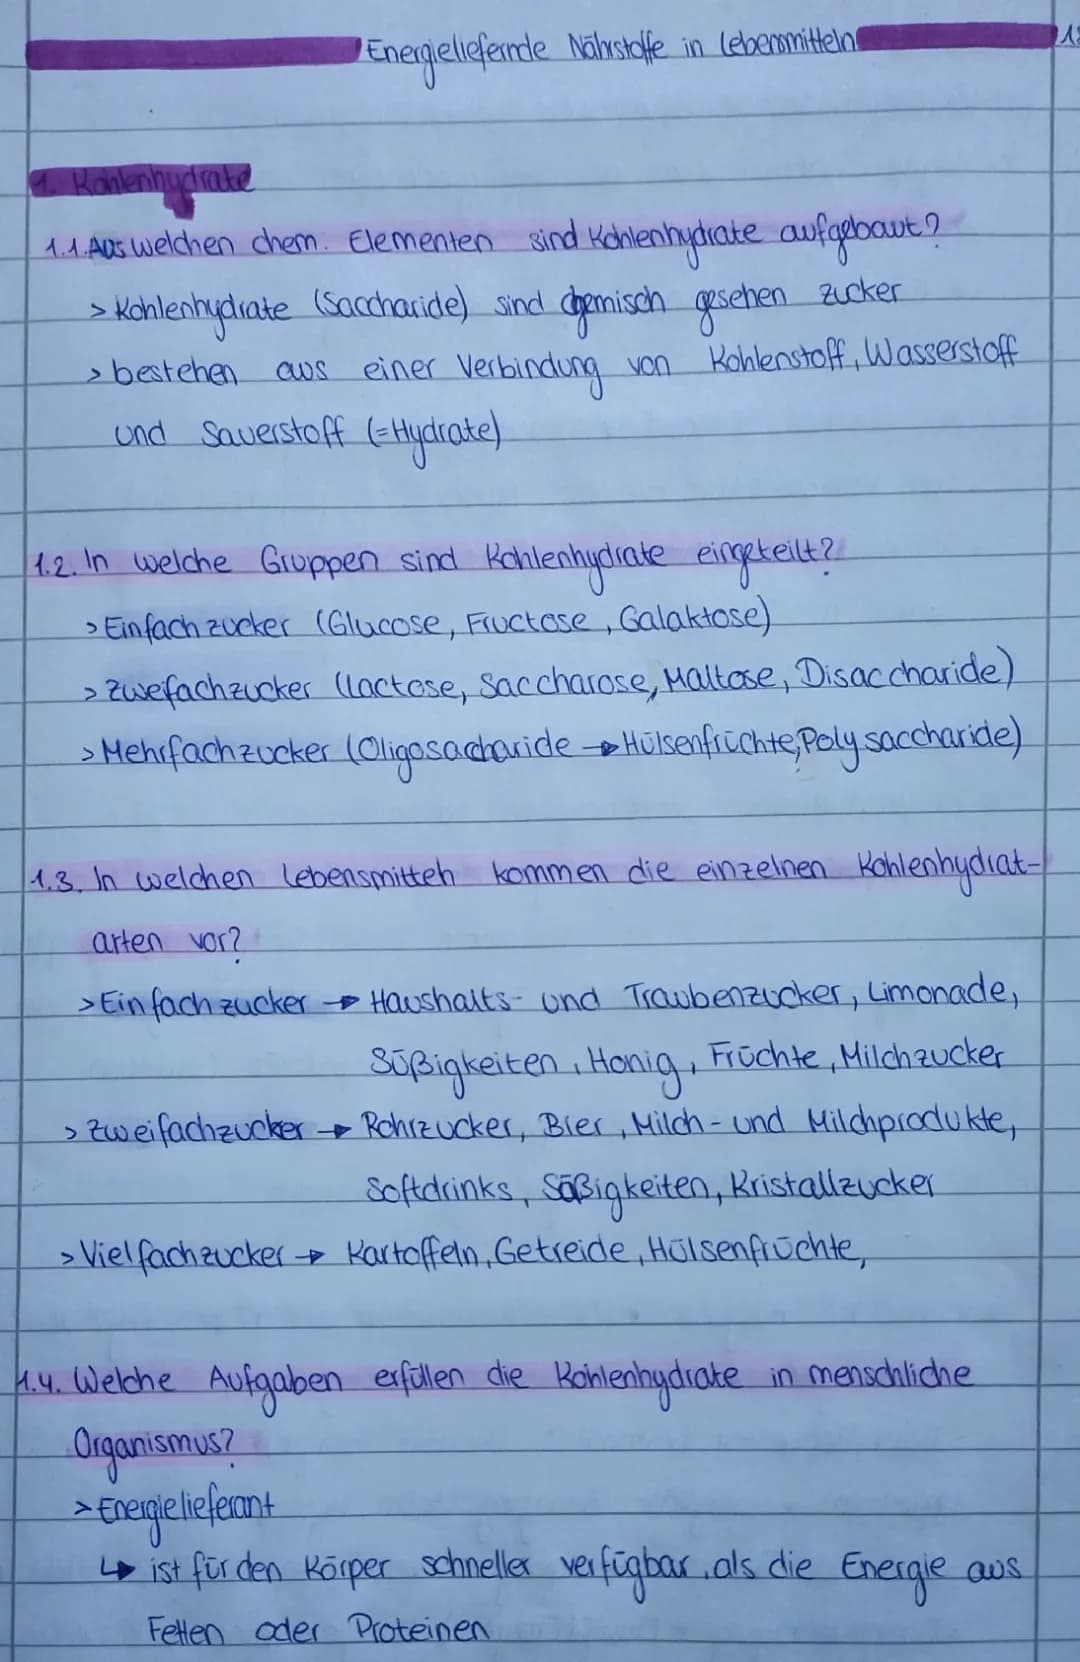 Energieliefernde Nährstoffe in Lebensmitteln
1. Kohlenhydrate
1.1. Aus welchen chem. Elementen sind Kohlenhydrate aufgebaut?
> Kohlenhydrate (Saccharide) sind chemisch gesehen Zucker
> bestehen aus einer Verbindung von Kohlenstoff, Wasserstoff
und Sauerstoff (=Hydrate)
1.2. In welche Gruppen sind Kohlenhydrate eingeteilt?
> Einfachzucker (Glucose, Fructose, Galaktose)
> Zweifachzucker (Lactose, Saccharose, Maltose, Disaccharide)
> Mehrfachzucker (Oligosaccharide → Hülsenfrüchte, Polysaccharide)
1.3. In welchen Lebensmitteln kommen die einzelnen Kohlenhydrat-
arten vor?
> Einfachzucker → Haushalts- und Traubenzucker, Limonade,
Süßigkeiten, Honig, Früchte, Milchzucker
> Zweifachzucker → Rohrzucker, Bier, Milch- und Milchprodukte,
Softdrinks, Süßigkeiten, Kristallzucker
> Vielfachzucker → Kartoffeln, Getreide, Hülsenfrüchte,
1.4. Welche Aufgaben erfüllen die Kohlenhydrate in menschliche
Organismus?
> Energielieferant
↳ ist für den Körper schneller verfügbar, als die Energie aus
Fetten oder Proteinen